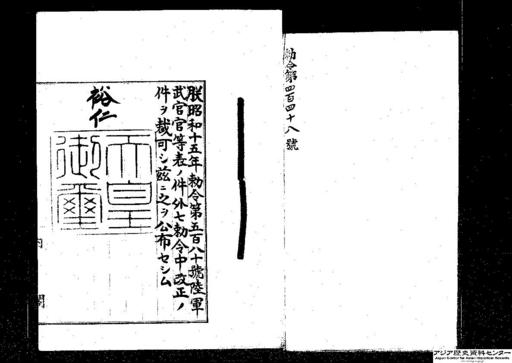 勅令第四百四十八號
朕昭和十五年勅令第五百八十號陸軍
武官官等表ノ件外七勅令中改正ノ
件ヲ裁可シ茲ニ之ヲ公布セシム
裕仁
天皇
御璽
内
閣
アジア歴史資料センター
Japan Center for Asian Historical Records